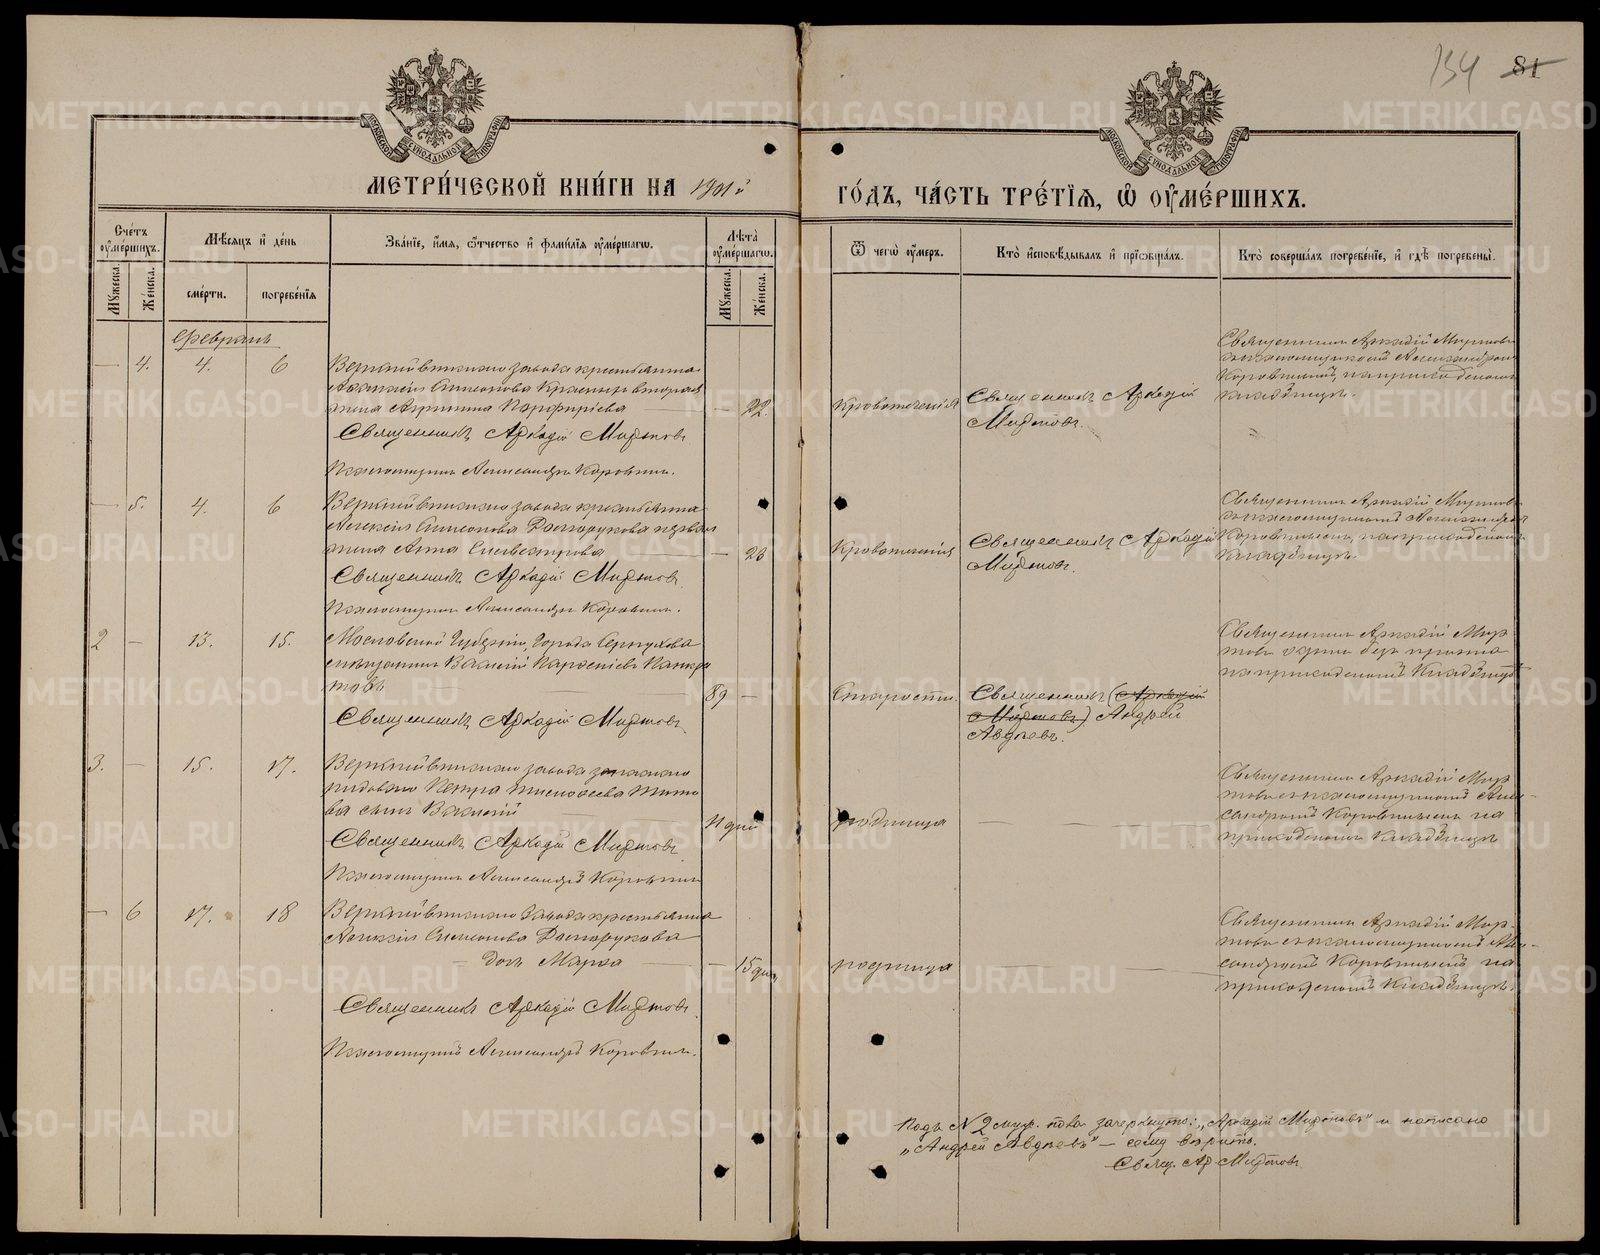 134 81
МЕТРИ́ЧЕСКОЙ КНИ́ГИ НА 1901 й
ГО́ДЪ, ЧА́СТЬ ТРЕ́ТЇѦ, Ѿ ОУ҆МЕ́РШИХЪ.
Сче́тъ оу҆ме́ршихъ.
Мꙋжеска.
Же́нска.
Мѣ́сѧцъ и҆ де́нь
сме́рти.
погребе́нїѧ
Зва́нїе, и҆́мѧ, ѻ҆́тчество и҆ фами́лїѧ оу҆ме́ршагѡ.
Лѣ́та оу҆ме́ршагѡ.
Мꙋжеска.
Же́нска.
Ѿ чегѡ̀ оу҆́меръ.
Кто̀ и҆сповѣ́дывалъ и҆ прїѡбща́лъ.
Кто̀ соверша́лъ погребе́нїе, и҆ гдѣ̀ погребены̀.
Февраль
— 4. 4. 6
Верхнійвинскаго завода крестьянина
жена Агрипина Порфиріева — 22.
Священникъ Аркадій Миртовъ
Псаломщикъ Александръ Коровинъ.
Кровотеченія
Священникъ Аркадій
Миртовъ.
Священникъ Аркадій Миртовъ
съ псаломщикомъ Александром
Коровинымъ, на приходскомъ
кладбищѣ.
— 5. 4. 6
Верхнійвинскаго завода крестьянина
Алексія Симеонова Расторгуева
жена Анна Сильвестрова — 23
Священникъ Аркадій Миртовъ
Псаломщикъ Александръ Коровинъ.
Кровотеченія
Священникъ Аркадій
Миртовъ.
Священникъ Аркадій Миртовъ
съ псаломщикомъ Александромъ
Коровинымъ, на приходскомъ
кладбищѣ.
2 — 13. 15.
Московской Губерніи, Города Серпухова
мѣщанинъ Василій Парѳеніевъ Панкра
товъ — 89 —
Священникъ Аркадій Миртовъ
Старости.
Священникъ (Аркадій
Миртовъ) Андрей
Авдѣевъ.
Священникъ Аркадій Мир-
товъ одинъ безъ причта
на приходскомъ кладбищѣ
3. — 15. 17.
Верхнійвинскаго завода запаснаго
рядового Петра
сынъ Василій
11 дней
Священникъ Аркадій Миртовъ
Псаломщикъ Александръ Коровинъ
родимца — —
Священникъ Аркадій Мир
товъ съ псаломщикомъ Алек-
сандромъ Коровинымъ на
приходскомъ кладбищѣ
— 6 17. 18
Верхнійвинскаго Завода крестьянина
Алексія Симеонова Расторгуева
— дочь Марѳа — — 15 дней
Священникъ Аркадій Миртовъ
Псаломщикъ Александръ Коровинъ.
родимца — —
Священникъ Аркадій Мир-
товъ съ псаломщикомъ Алек-
сандромъ Коровинымъ на
приходскомъ кладбищѣ.
Подъ № 2 муж. пола зачеркнуто: „Аркадій Миртовъ" и написано
„Андрей Авдѣевъ" — сему вѣрить.
Свящ. Ар Миртовъ
METRIKI.GASO-URAL.RU